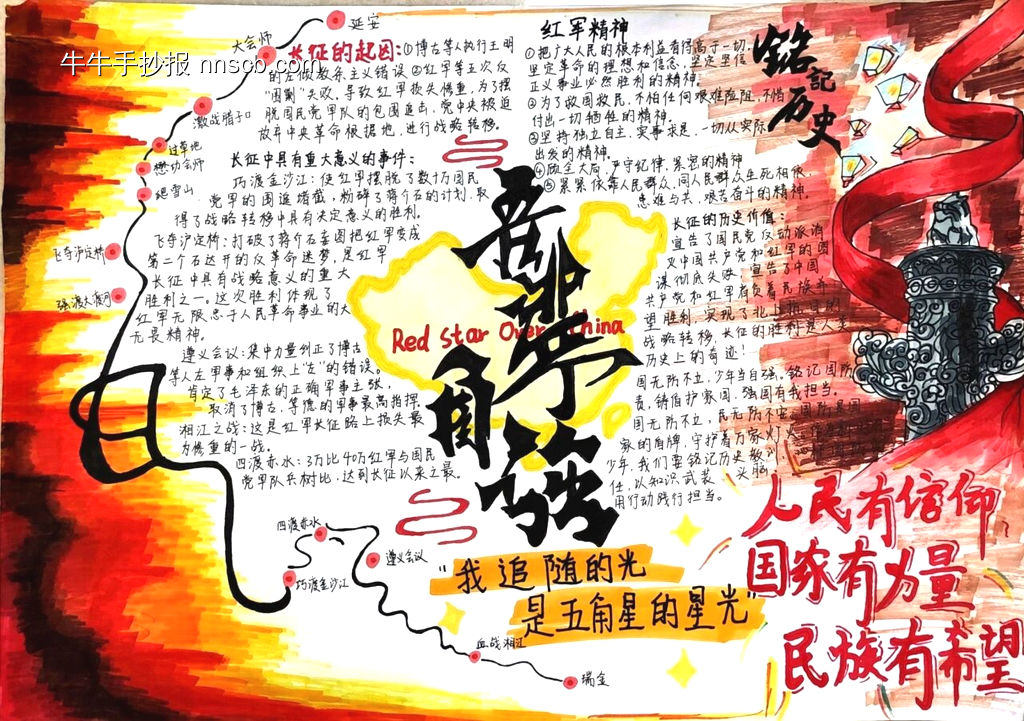 延安
大会师
激战腊子口
过草地
懋功会师
爬雪山
飞夺泸定桥
强渡大渡河
四渡赤水
遵义会议
巧渡金沙江
血战湘江
瑞金
牛牛手抄报 nnscb.com
长征的起因:①博古等人执行王明
的左倾教条主义错误②红军等五次反
"围剿"失败、导致红军损失惨重,为了摆
脱国民党军队的包围追击,党中央被迫
放弃中央革命根据地,进行战略转移。
长征中具有重大意义的事件:
巧渡金沙江:使红军摆脱了数十万国民
党军的围追堵截,粉碎了蒋介石的计划.取
得了战略转移中具有决定意义的胜利。
飞夺泸定桥:打破了蒋介石妄图把红军变成
第二个石达开的反革命迷梦,是红军
长征中具有战略意义的重大
胜利之一。这次胜利体现了
红军无限忠于人民革命事业的大
无畏精神。
遵义会议:集中力量纠正了博古
等人左军事和组织上"左"的错误。
肯定了毛泽东的正确军事主张,
取消了博古,等德的军事最高指挥,
湘江之战:这是红军长征路上损失最
为惨重的一战。
四渡赤水:3万比40万红军与国民
党军队兵树比,达到长征以来之最。
吾辈
自强
Red star Over China
红军精神
①把广大人民的根本利益看得高于一切,
坚定革命的理想和信念,坚定坚信
正义事业必然胜利的精神。
②为了救国救民,不怕任何艰难险阻,不惜
付出一切牺牲的精神。
③坚持独立自主,实事求是,一切从实际
出发的精神。
④顾全大局,严守纪律,紧密的精神
⑤紧紧依靠人民群众,同人民群众生死相依,
患难与共,艰苦奋斗的精神。
铭記
历史
长征的历史价值:
宣告了国民党反动派消
灭中国共产党和红军的图
谋彻底失败;宣告了中国
共产党和红军肩负着民族希
望胜利,实现了北上抗日的
战略转移,长征的胜利是人类
历史上的奇迹!
国无防不立,少年当自强。铭记国防
责,铸维护家国,强国有我担当。
国无防不立,民无防不安,国防是国
家的盾牌,守护着万家灯火
少年,我们要铭记历史教
任,以知识武装 头脑
用行动践行担当。
"我追随的光
是五角星的星光"
人民有信仰
国家有力量
民族有希望